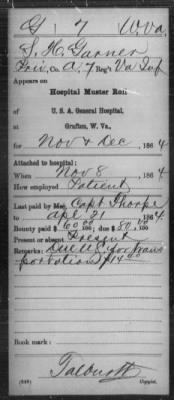 G | 7 | W. Va.
S. H. Garner
Priv, Co. A, 7 Reg't Va Inf
Appears on
Hospital Muster Roll
of
U. S. A. General Hospital,
at
Grafton, W. Va.,
for Nov & Dec, 1864
Attached to hospital:
When Nov 8, 1864
How employed Patient
Last paid by Maj. Capt Thorpe
to Apl 21, 1864
Bounty paid $60 00/100; due $80 00/100
Present or absent Present
Remarks: Due U.S. for trans
portation $14 00
Book mark:
Talbutt
(648) Copyist.